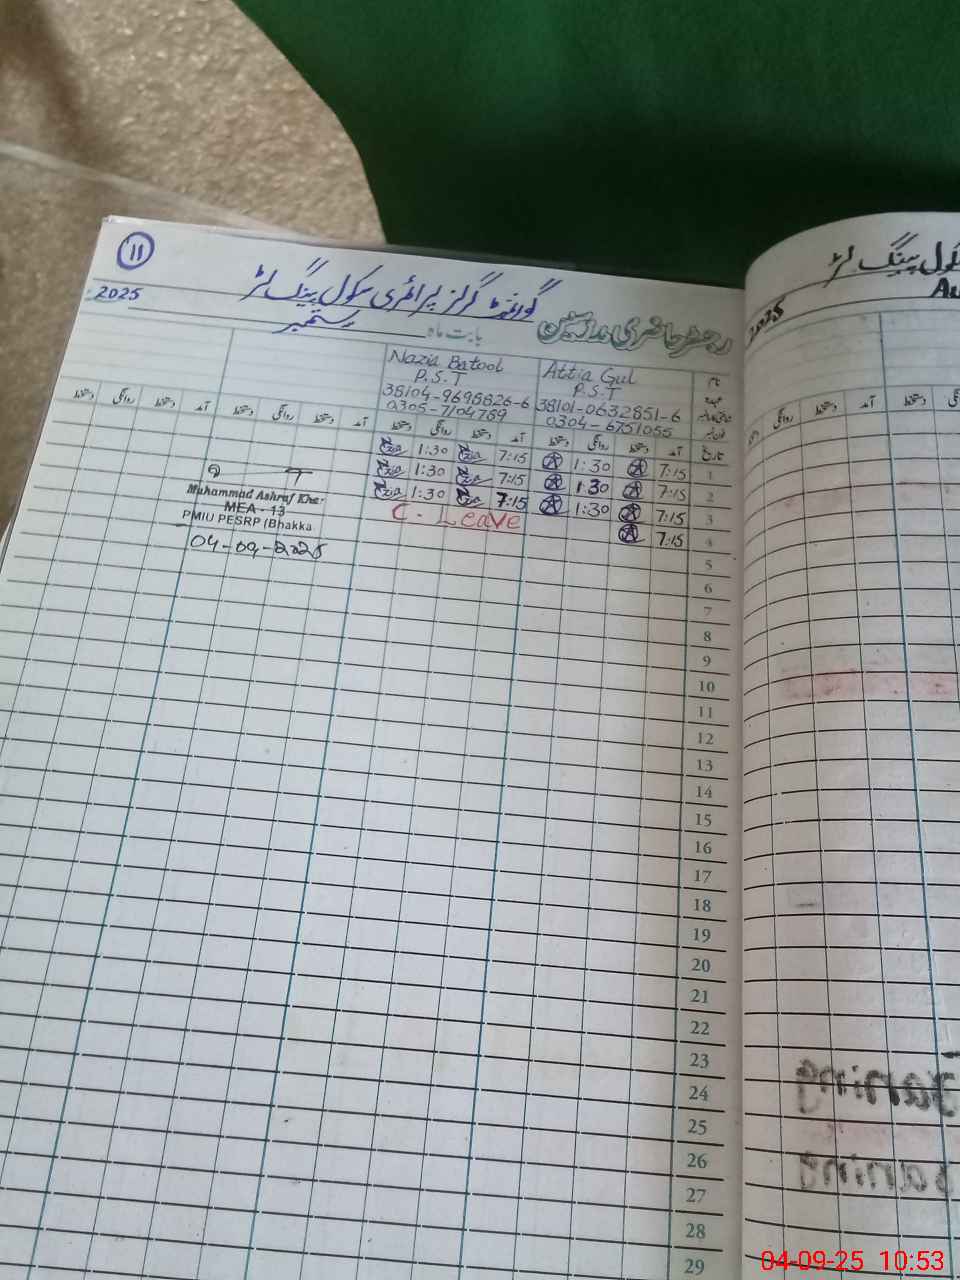 11
گورنمنٹ گرلز پرائمری سکول پینگ لڑ
2025
رجسٹر حاضری مدرسین
بابت ماہ ستمبر
نام
Attia Gul
Nazia Batool
P.S.T
P.S.T
38101-0632851-6
38104-9698826-6
0304-6751055
0305-7104789
تاریخ آمد دستخط روانگی دستخط آمد دستخط روانگی دستخط آمد دستخط روانگی دستخط آمد دستخط روانگی دستخط
1 7:15 1:30 7:15 1:30
2 7:15 1:30 7:15 1:30
3 7:15 1:30 7:15 1:30
4 7:15 C. Leave
Muhammad Ashraf Khan
MEA - 13
PMIU PESRP (Bhakka
04-09-2025
5
6
7
8
9
10
11
12
13
14
15
16
17
18
19
20
21
22
23
24
25
26
27
28
29
سکول پینگ لڑ
Au
2025
آمد دستخط
04-09-25 10:53